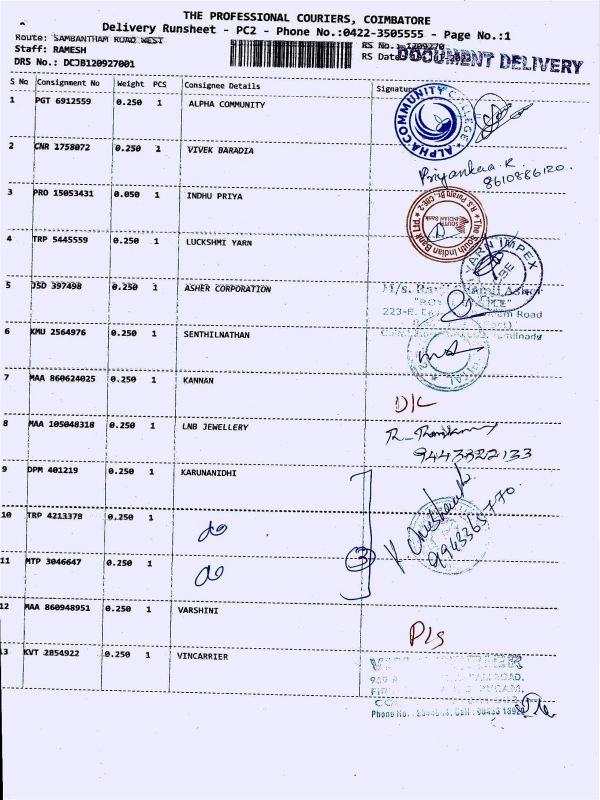 THE PROFESSIONAL COURIERS, COIMBATORE
Delivery Runsheet - PC2 - Phone No.:0422-3505555 - Page No.:1
Route: SAMBANTHAM ROAD WEST
Staff: RAMESH
DRS No.: DCJB120927001
RS No. 1209270
RS Date
DOCUMENT DELIVERY
S No Consignment No Weight PCS Consignee Details Signature
1 PGT 6912559 0.250 1 ALPHA COMMUNITY
ALPHA COMMUNITY COLLEGE
2 CNR 1758072 0.250 1 VIVEK BARADIA
Priyankaa.R.
8610886120.
3 PRO 15053431 0.050 1 INDHU PRIYA
The South Indian Bank
SOUTH INDIAN Bank
4 TRP 5445559 0.250 1 LUCKSHMI YARN
YARN IMPEX
CBE
5 JSD 397498 0.250 1 ASHER CORPORATION
M/s.
223-E.
Road
6 KMU 2564976 0.250 1 SENTHILNATHAN
7 MAA 860624025 0.250 1 KANNAN
D/L
8 MAA 105048318 0.250 1 LNB JEWELLERY
9443822133
9 DPM 401219 0.250 1 KARUNANIDHI
10 TRP 4213378 0.250 1 do
11 MTP 3046647 0.250 1 do
3
9943365770.
12 MAA 860948951 0.250 1 VARSHINI
P/s
13 KVT 2854922 0.250 1 VINCARRIER
ROAD,
PURAM,
Phone No.